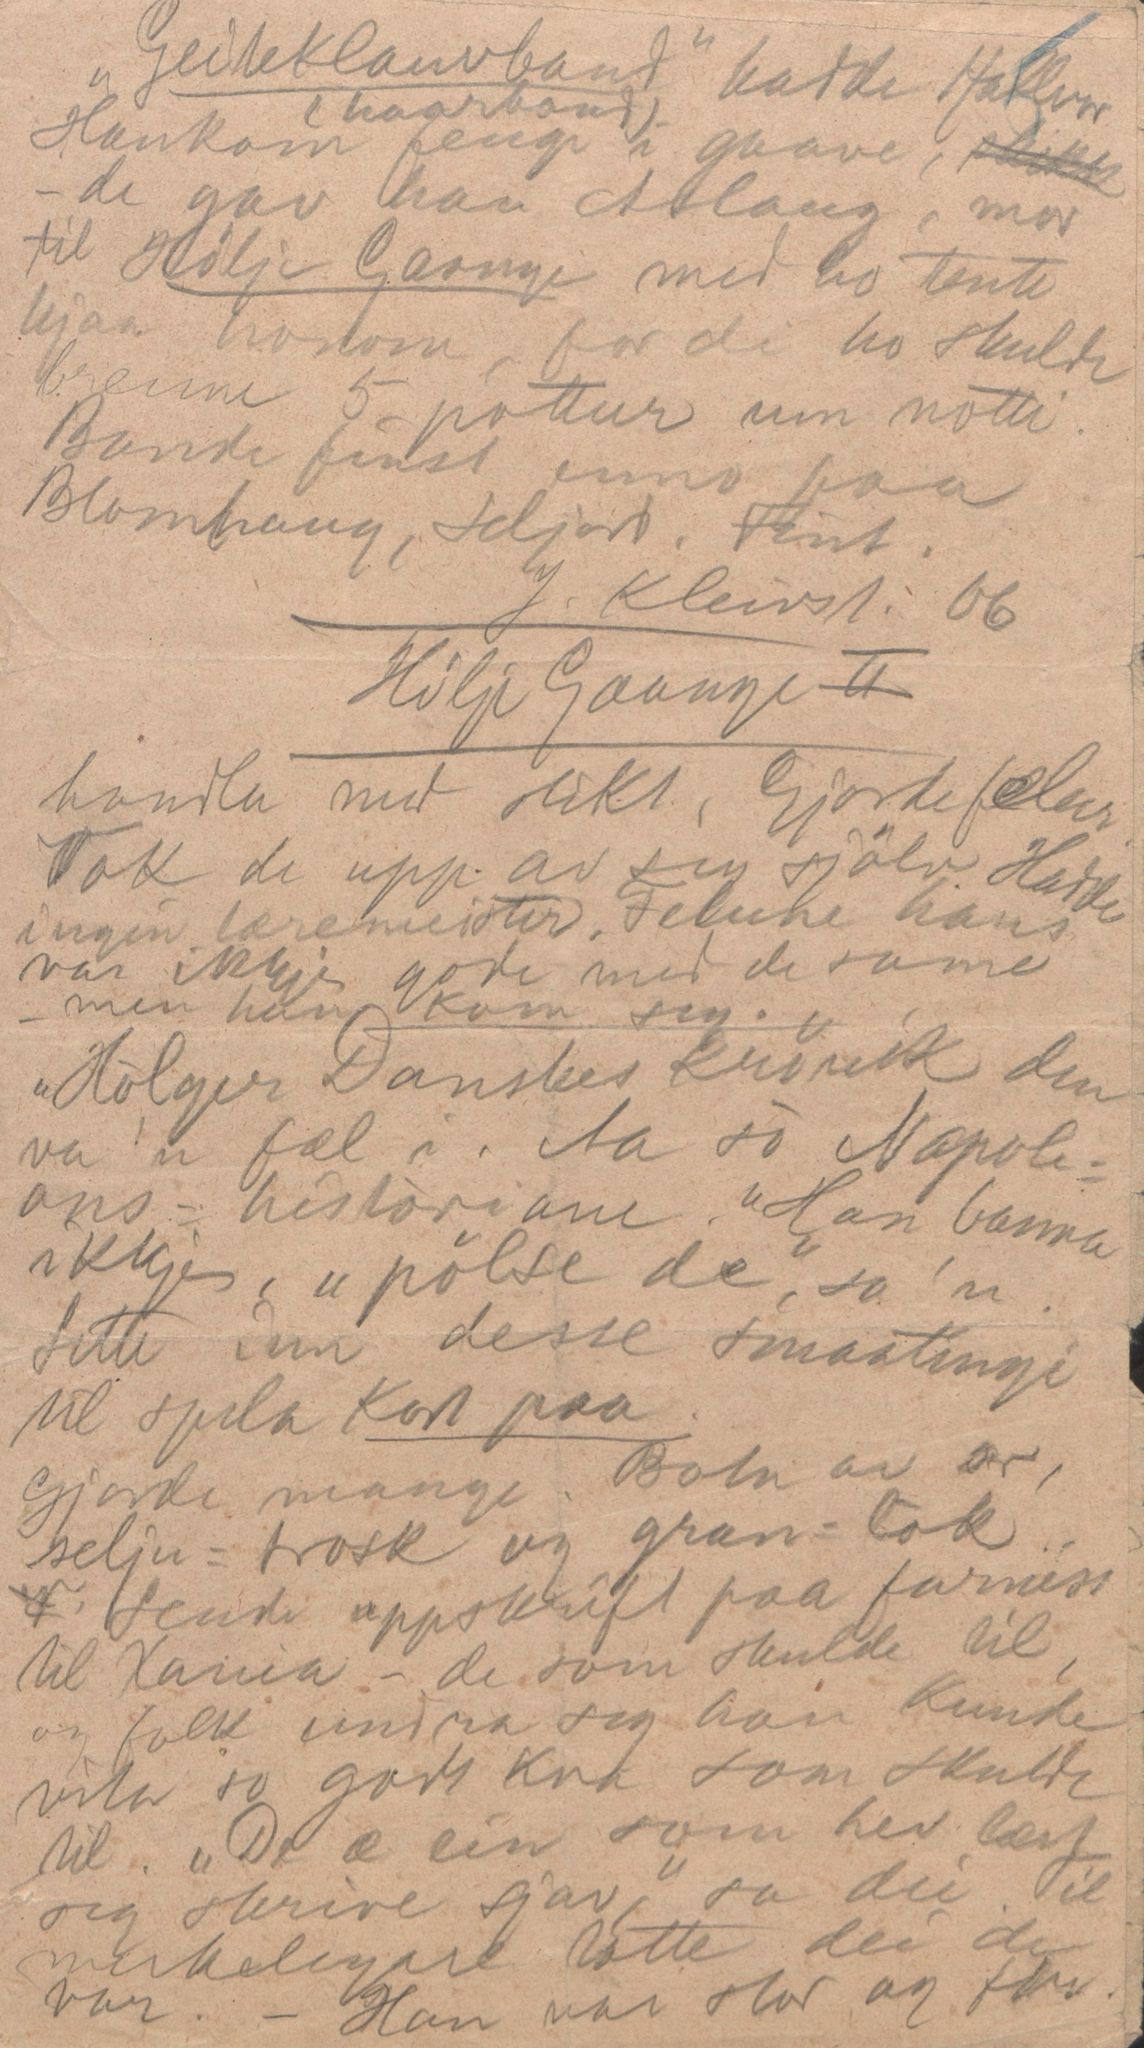 „Geiteklauvband" hadde Hallvor
(haarband)
Haukom fengi i gaave,
- de gav han Aslaug, mor
til Hölje Gaange med ho tente
hjaa honom, for di ho skulde
brenne 5 pottur um notti.
Bande finst enno paa
Blomhaug, Seljord. Fint.
J. Kleivst. 06
Hölje Gaange II
handla med slikt, Gjorde felur
Tok de upp av seg sjölv Hadde
ingin læremeister. Felune hans
var ikkje gode med de same
- men han kom seg.
„Holger Danskes krönik" den
va 'n fæl i. Aa so Napole=
ons=historiane. Han banna
ikkje, „pölse de", sa 'n.
Sette inn desse smaatingi
til spela kort paa.
Gjorde mange. Botn av or,
selju=trosk og gran=lok.
Sende uppskrift paa farniss
til Xania - de som skulde til,
og folk undra seg han kunde
vita so godt kva som skulde
til. „De æ ein som hev lært
seg skrive sjav," sa dei. Til
merkelegare totte dei de
var. - Han var stor og før.